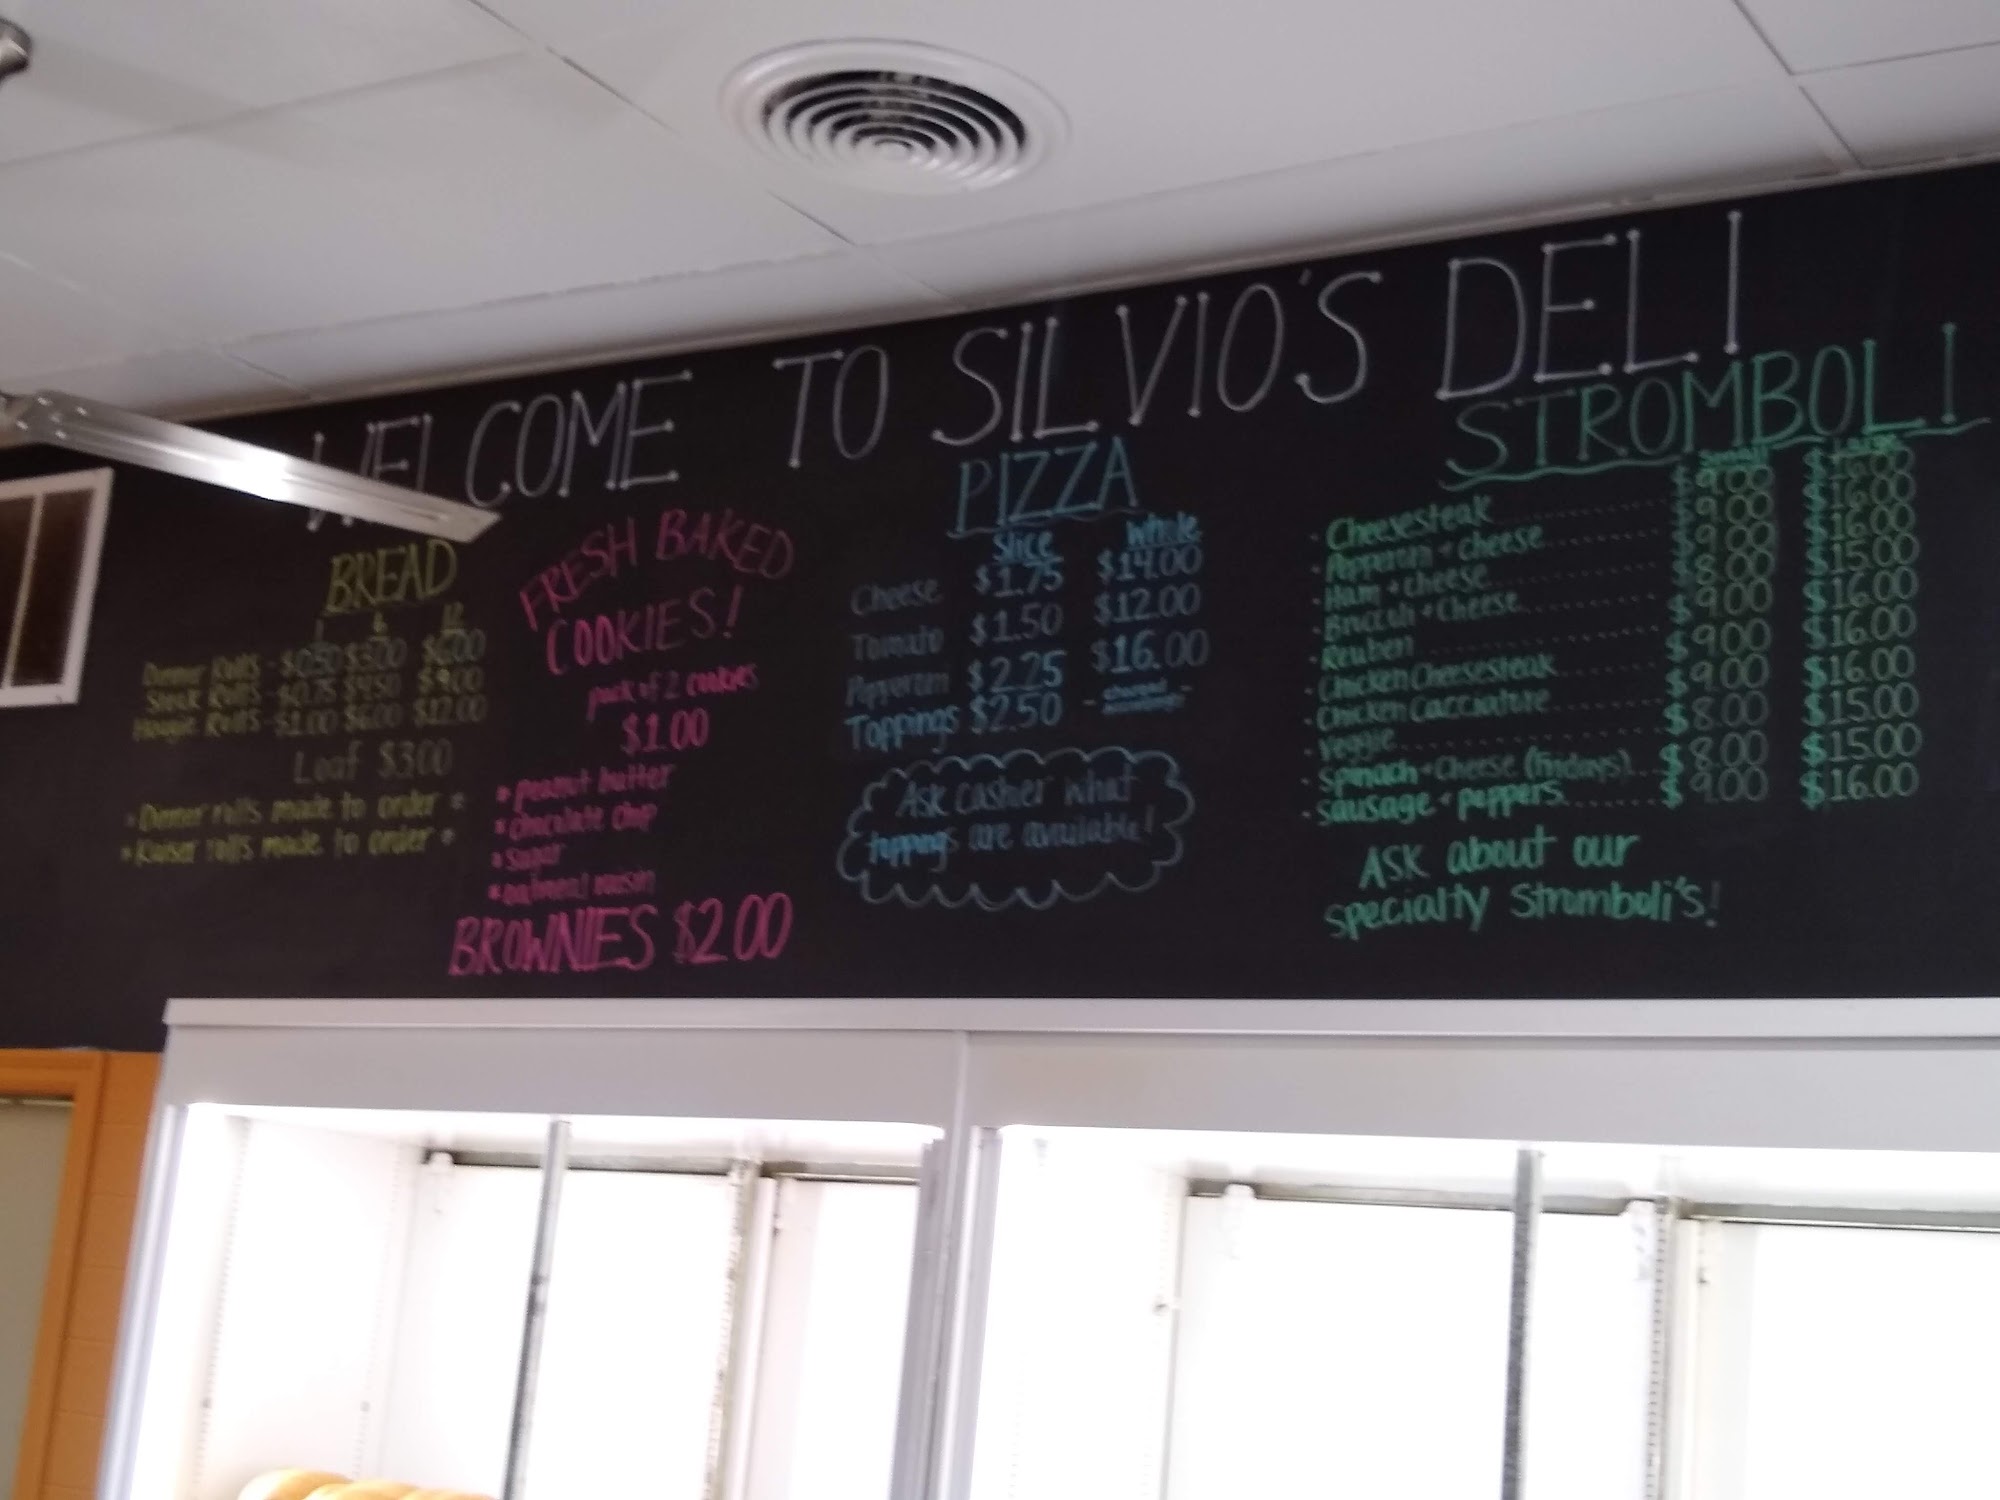 WELCOME TO SILVIO'S DELI
BREAD
1 6 12
Dinner Rolls - $0.50 $3.00 $6.00
Steak Rolls - $0.75 $4.50 $9.00
Hoagie Rolls - $1.00 $6.00 $12.00
Loaf $3.00
* Dinner rolls made to order *
* Kaiser rolls made to order *
FRESH BAKED
COOKIES!
pack of 2 cookies
$1.00
* peanut butter
* chocolate chip
* sugar
* oatmeal raisin
BROWNIES $2.00
PIZZA
Slice Whole
Cheese $1.75 $14.00
Tomato $1.50 $12.00
Pepperoni $2.25 $16.00
Toppings $2.50
Ask casher what
toppings are available!
STROMBOLI
Small Large
· Cheesesteak $9.00 $16.00
· Pepperoni + cheese $9.00 $16.00
· Ham + cheese $9.00 $16.00
· Broccoli + Cheese $8.00 $15.00
· Reuben $9.00 $16.00
· Chicken Cheesesteak $9.00 $16.00
· Chicken Cacciatore $9.00 $16.00
· Veggie $8.00 $15.00
· Spinach + Cheese (Fridays) $8.00 $15.00
· Sausage + peppers $9.00 $16.00
ASK about our
specialty Stromboli's!